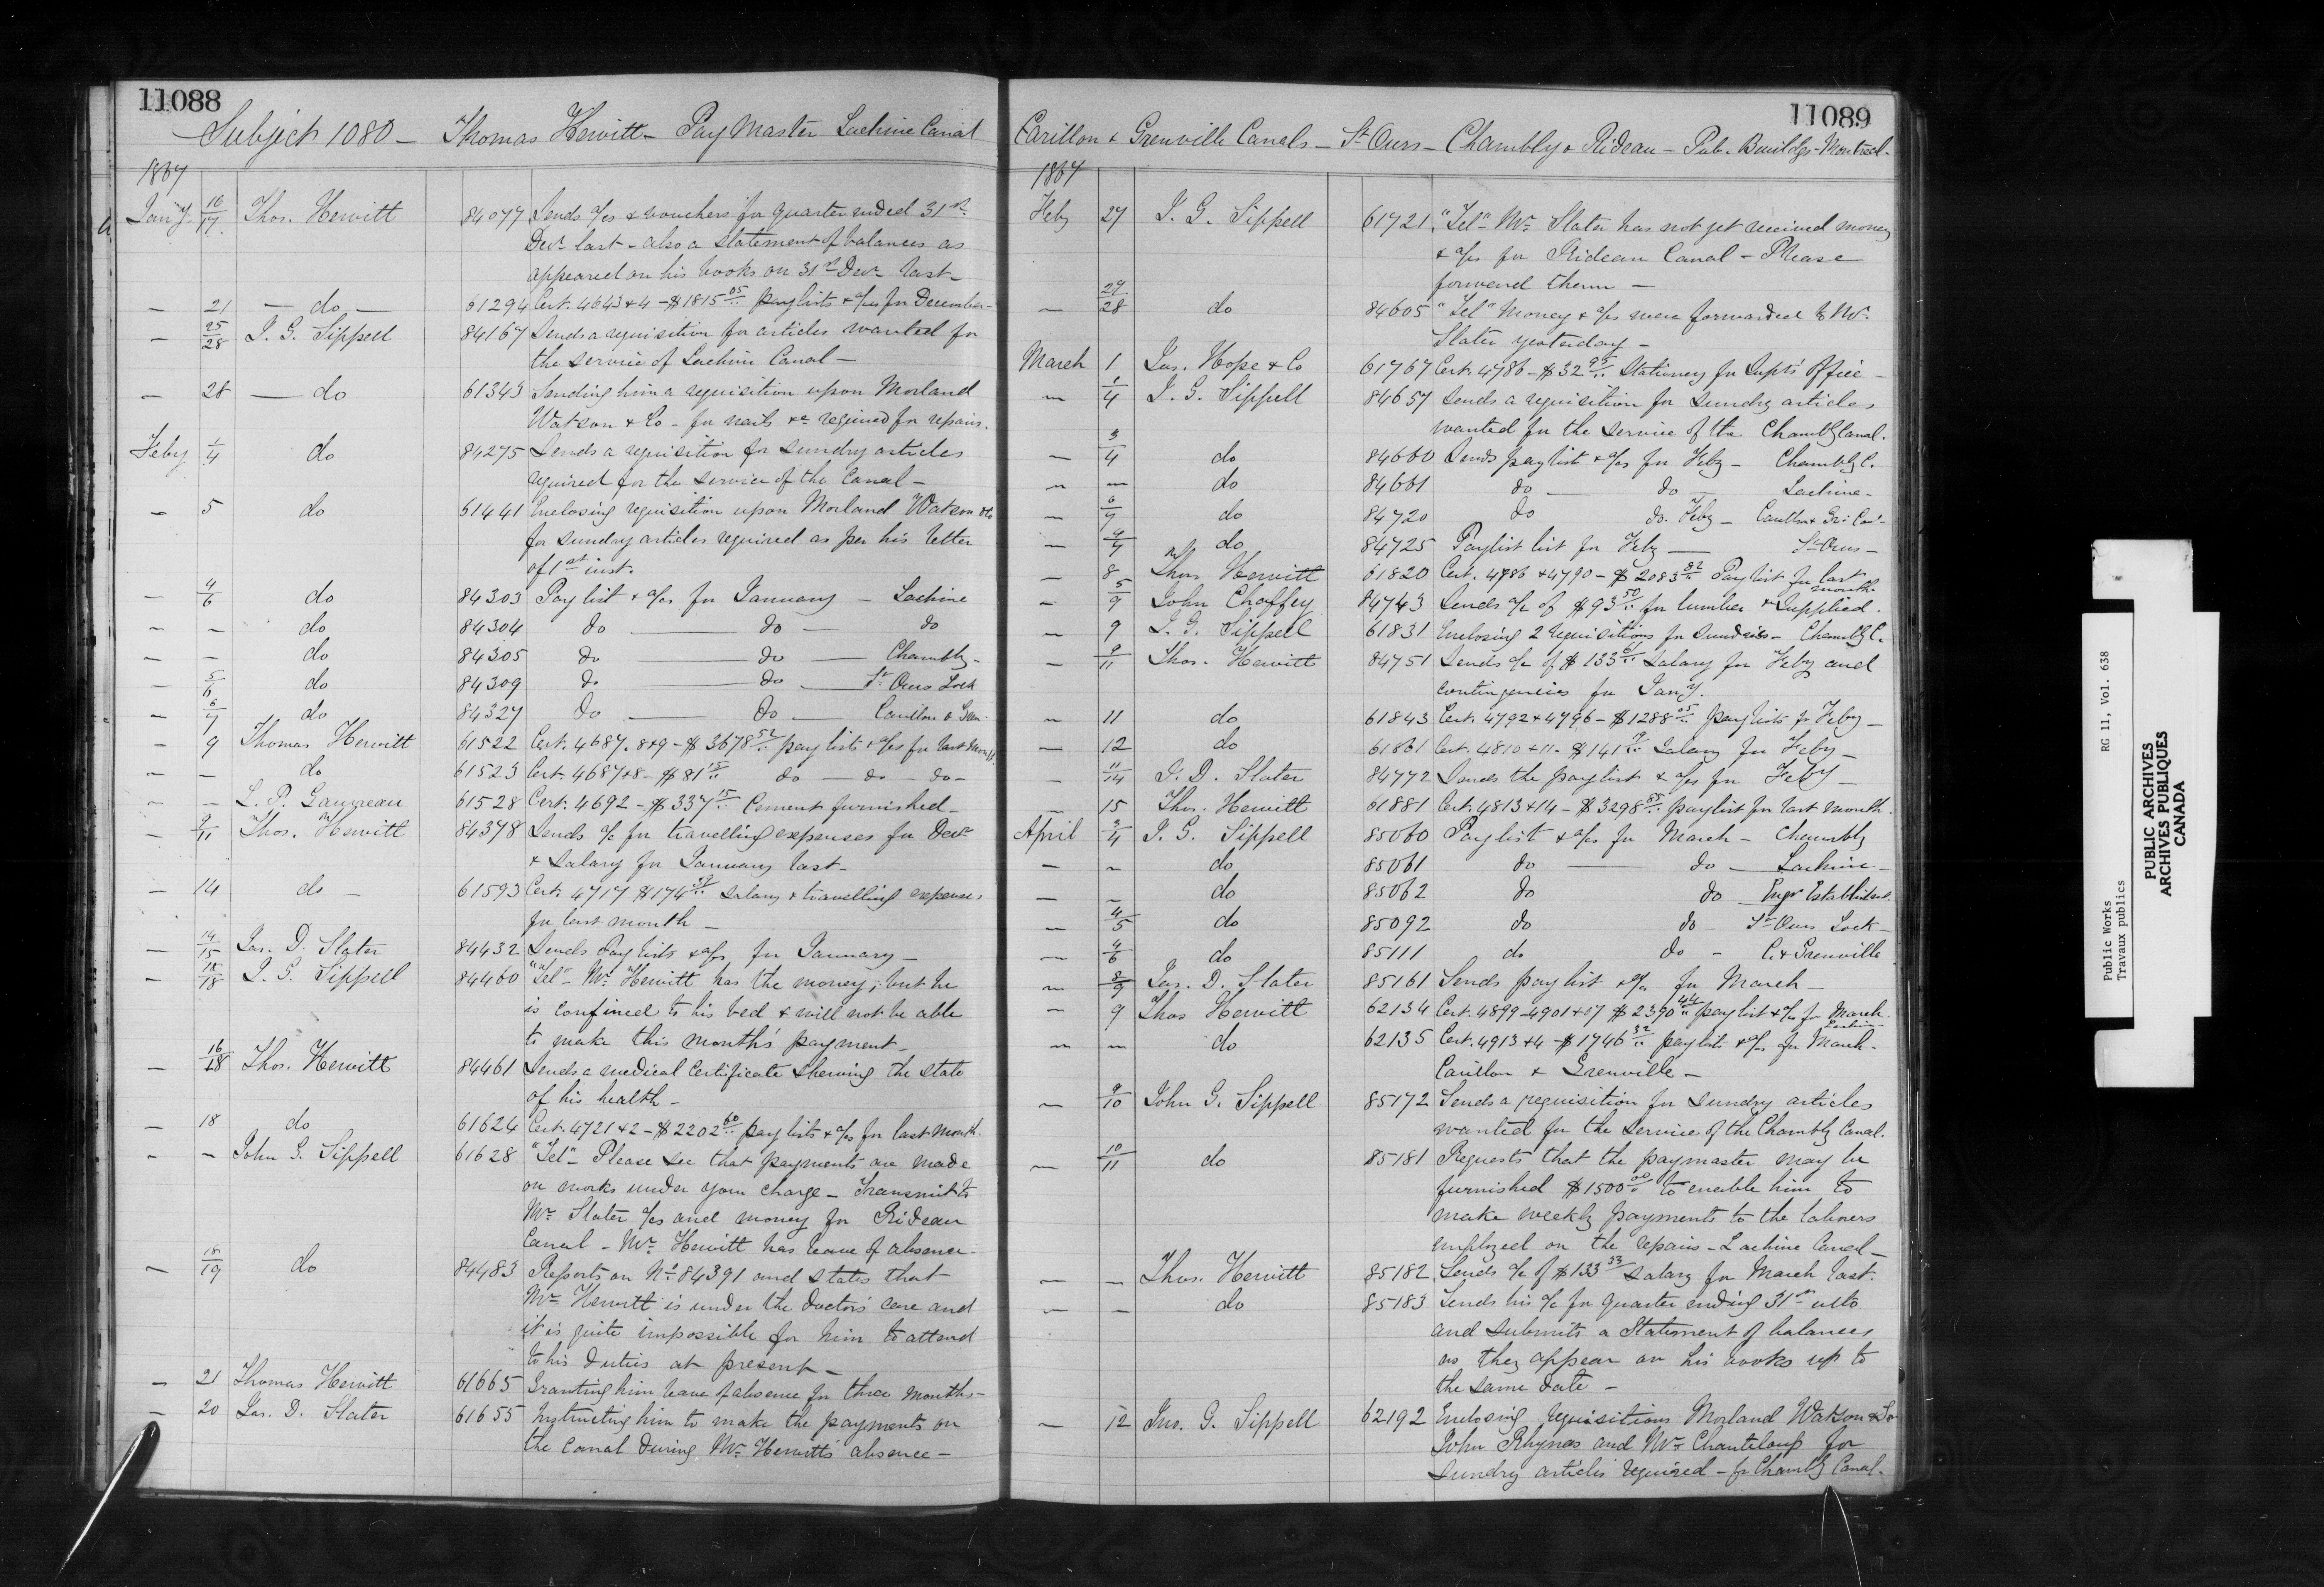 11088
Subject 1080 - Thomas Hewitt - Pay Master Lachine Canal
1867
Jany. 16/17 Thos. Hewitt 84077 Sends a/cs & vouchers for quarter ended 31st
Decr last - also a statement of balances as
appeared on his books on 31st Decr last -
- 21 - do - 61294 Cert. 4643 & 4 - $1815 05/.. pay lists & a/cs for December -
- 25/28 J. G. Sippell 84167 Sends a requisition for articles wanted for
the service of Lachine Canal -
- 28 - do 61343 Sending him a requisition upon Morland
Watson & Co - for nails &c required for repairs.
Feby 1/4 do 84275 Sends a requisition for sundry articles
required for the service of the Canal -
- 5 do 61441 Enclosing requisition upon Morland Watson & Co
for sundry articles required as per his letter
of 1st inst.
- 4/6 do 84303 Pay list & a/cs for January - Lachine
- - do 84304 do - do - do
- - do 84305 do - do - Chambly -
- 5/6 do 84309 do - do - St Ours Lock
- 6/7 do 84327 do - do - Carillon & Gren.
- 9 Thomas Hewitt 61522 Cert. 4687. 8 & 9 - $3678 52/.. pay lists & a/cs for last month
- - do 61523 Cert. 4687 & 8 - $81 15/.. do - do - do -
- - L. P. Gauvreau 61528 Cert. 4692 - $337 15/.. Cement furnished -
- 9/11 Thos. Hewitt 84378 Sends a/c for travelling expenses for Decr
& Salary for January last -
- 14 do - 61593 Cert. 4717 $174 39/.. Salary & travelling expenses
for last month -
- 14/15 Jas. D. Slater 84432 Sends Pay lists & a/cs for January -
- 18/18 J. G. Sippell 84460 "Tel" - Mr Hewitt has the money, but he
is confined to his bed & will not be able
to make this month's payment -
- 16/18 Thos. Hewitt 84461 Sends a medical certificate shewing the state
of his health -
- 18 do 61624 Cert. 4721 & 2 - $2202 60/.. pay lists & a/cs for last month.
- - John G. Sippell 61628 "Tel" - Please see that payments are made
on works under your charge - Transmit to
Mr Slater a/cs and money for Rideau
Canal - Mr Hewitt has leave of absence -
- 18/19 do 84483 Reports on No 84391 and states that
Mr Hewitt is under the doctor's care and
it is quite impossible for him to attend
to his duties at present -
- 21 Thomas Hewitt 61665 Granting him leave of absence for three months -
- 20 Jas. D. Slater 61655 Instructing him to make the payments on
the Canal during Mr Hewitt's absence -
11089
Carillon & Grenville Canals - St Ours - Chambly & Rideau - Pub. Buildgs - Montreal -
1867
Feby 27 J. G. Sippell 61721 "Tel" Mr Slater has not yet received money
& a/cs for Rideau Canal - Please
forward them -
- 27/28 do 84605 "Tel" Money & a/cs were forwarded to Mr
Slater yesterday -
March 1 Jas. Hope & Co 61767 Cert. 4786 - $32 95/.. Stationery for Supts Office -
- 1/4 J. G. Sippell 84657 Sends a requisition for sundry articles
wanted for the service of the Chambly Canal.
- 3/4 do 84660 Sends pay list & a/cs for Feby - Chambly C.
- - do 84661 do - do - Lachine -
- 6/7 do 84720 do do. Feby - Carillon & Gr: Can -
- 4/7 do 84725 Paylist list for Feby - St Ours -
- 8 Thos Hewitt 61820 Cert. 4786 & 4790 - $2083 82/.. Pay list for last
month
- 5/9 John Chaffey 84743 Sends a/c of $93 50/.. for lumber & supplied.
- 9 J. G. Sippell 61831 Enclosing 2 requisitions for sundries - Chambly C.
- 9/11 Thos. Hewitt 84751 Sends a/c of $133 Salary for Feby and
contingencies for Jany.
- 11 do 61843 Cert. 4792 & 4796 - $1288 05/.. pay lists for Feby -
- 12 do 61861 Cert. 4810 & 11 - $141 Salary for Feby -
- 11/14 J. D. Slater 84772 Sends the paylist & a/cs for Feby -
- 15 Thos. Hewitt 61881 Cert. 4813 & 14 - $3298 55/.. paylist for last month.
April 3/4 J. G. Sippell 85060 Pay list & a/cs for March - Chambly
- - do 85061 do - do - Lachine -
- - do 85062 do do Engr Establishmt.
- 4/5 do 85092 do do - St Ours Lock -
- 4/6 do 85111 do do - C. & Grenville
- 8/9 Jas. D. Slater 85161 Sends pay list & a/cs for March -
- 9 Thos Hewitt 62134 Cert. 4899 - 4901 & 07 $2390 44/.. pay list & a/cs for March -
Lachine
- - do 62135 Cert. 4913 & 4 - $1746 32/.. pay list & a/cs for March -
Carillon & Grenville -
- 9/10 John G. Sippell 85172 Sends a requisition for sundry articles
wanted for the service of the Chambly Canal.
- 10/11 do 85181 Requests that the paymaster may be
furnished $1500 00/.. to enable him to
make weekly payments to the laborers
employed on the repairs - Lachine Canal -
- - Thos. Hewitt 85182 Sends a/c of $133 33 Salary for March last.
- - do 85183 Sends his a/c for quarter ending 31st ulto
and submits a Statement of balances
as they appear on his books up to
the same date -
- 12 Jno. G. Sippell 62192 Enclosing requisitions Morland Watson & Co
John Rhynas and Mr Chanteloup for
sundry articles required - for Chambly Canal.
Public Works RG 11, Vol. 638
Travaux publics
PUBLIC ARCHIVES
ARCHIVES PUBLIQUES
CANADA